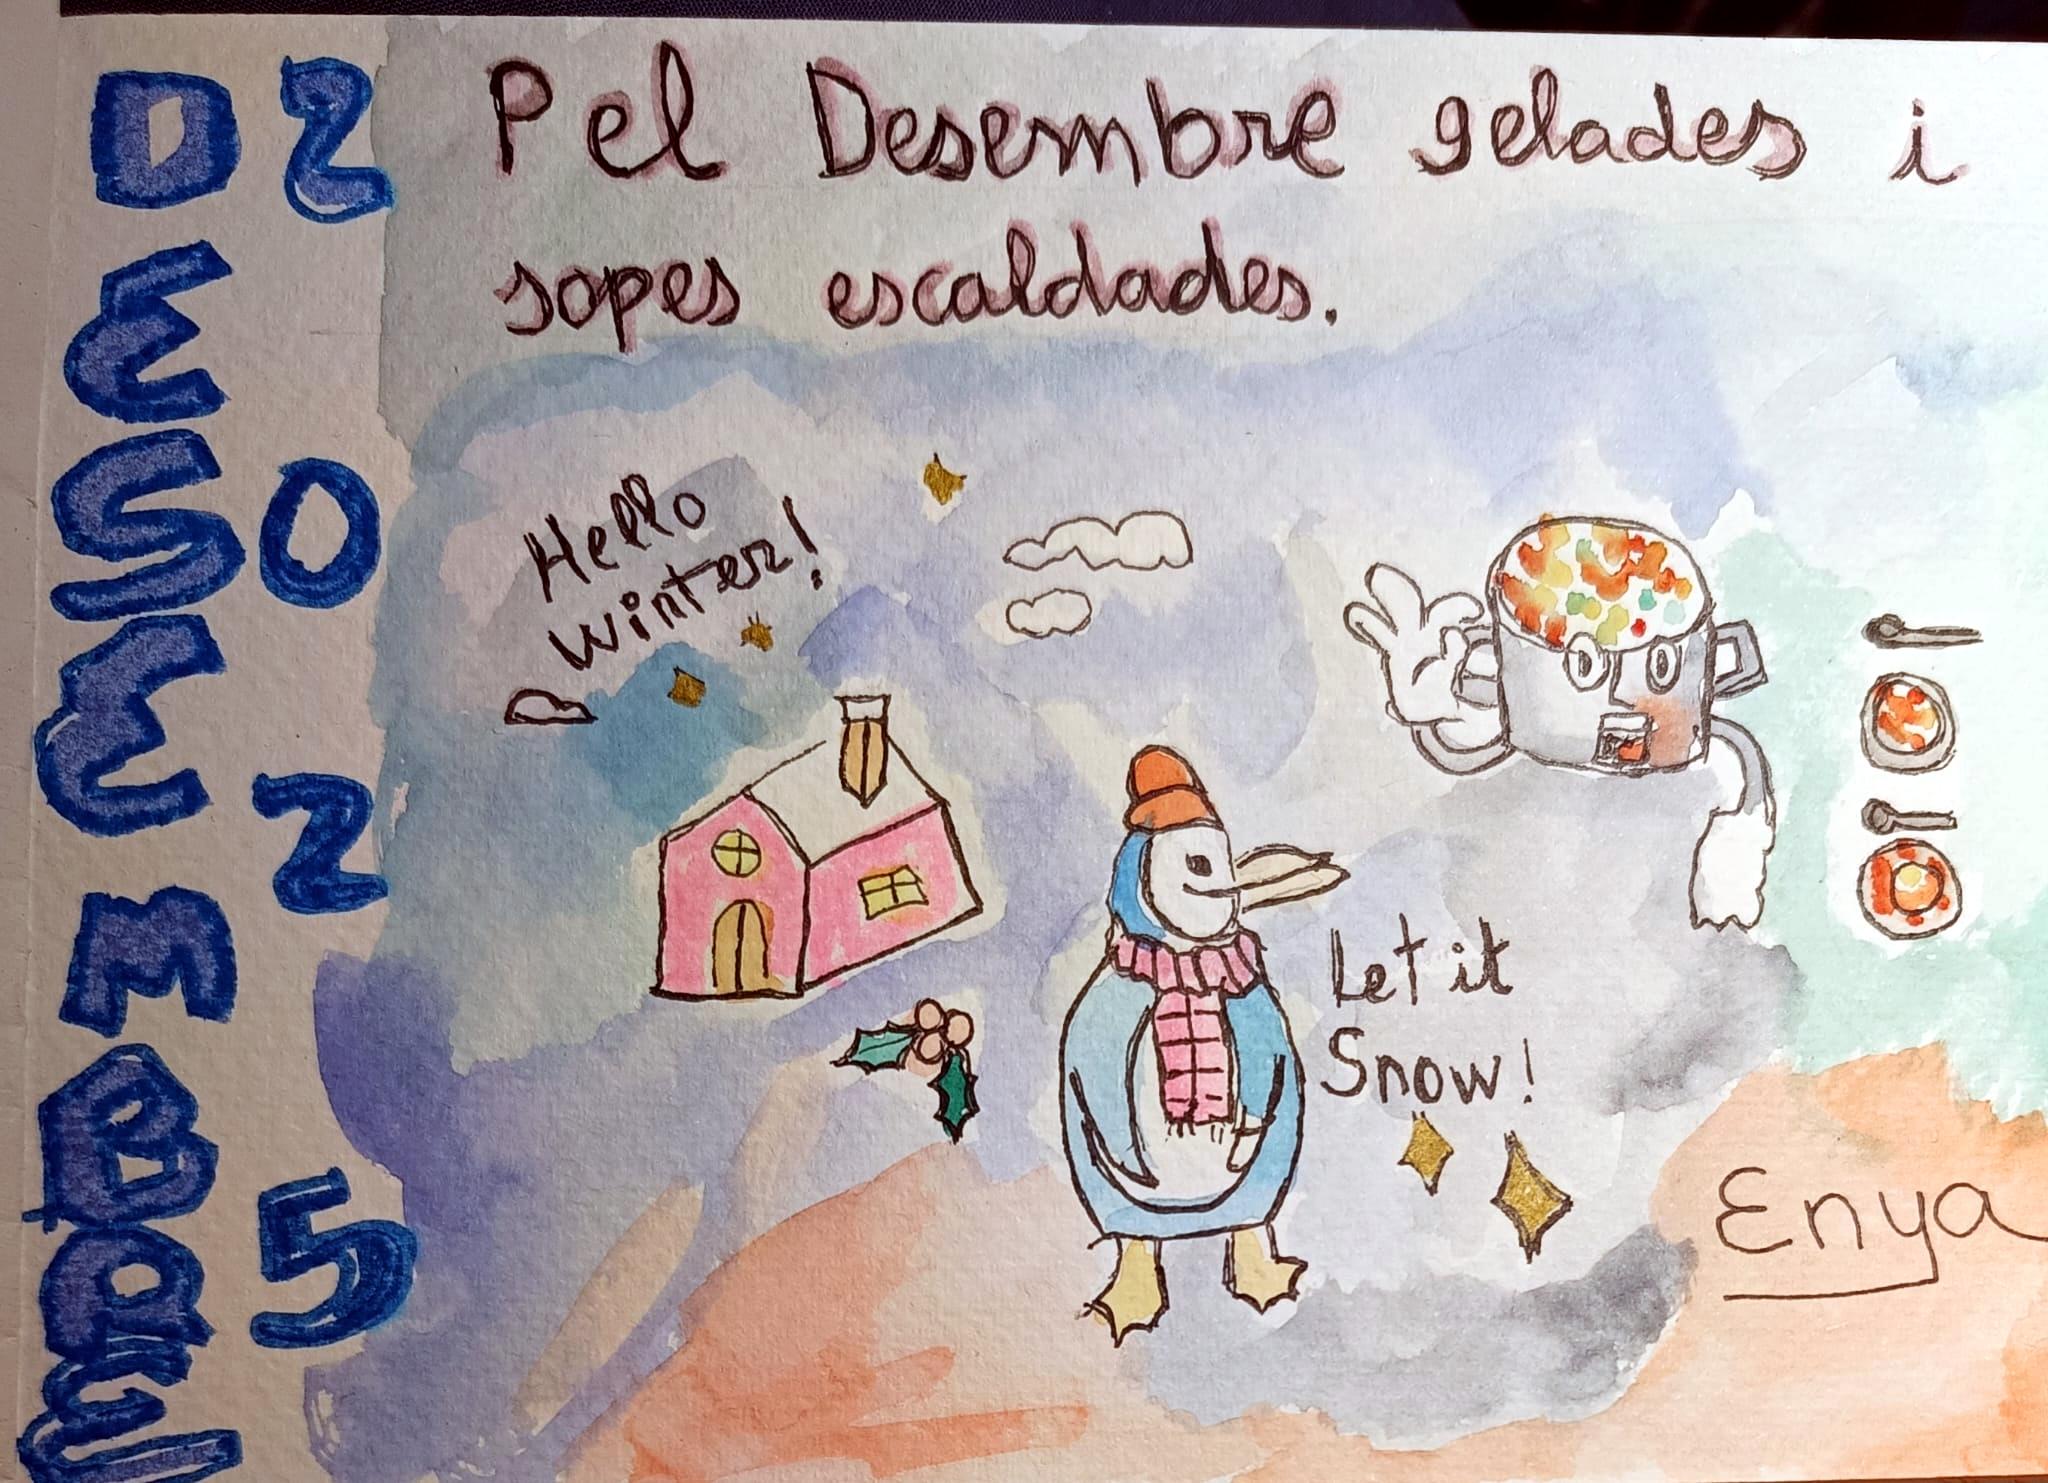 DESEMBRE
2025
Pel Desembre gelades i
sopes escaldades.
Hello
winter!
Let it
Snow!
Enya